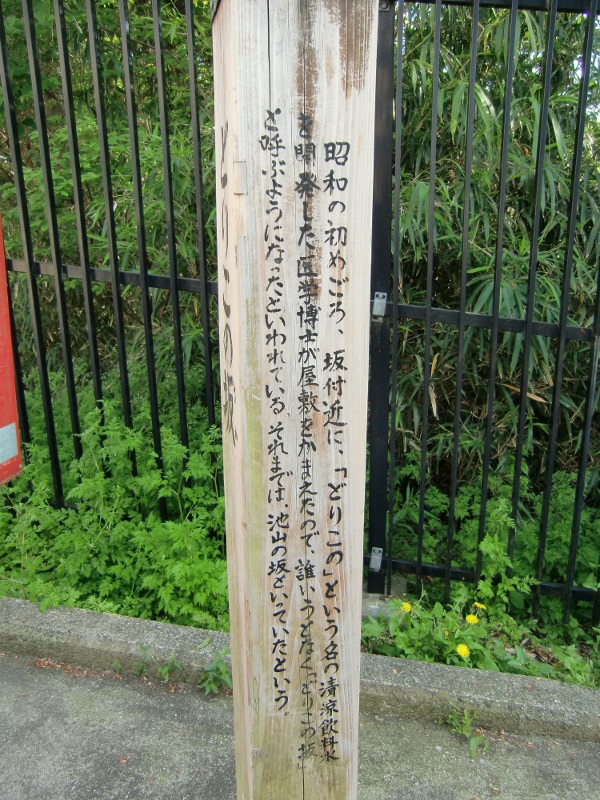 昭和の初めごろ、坂付近に、「どりこの」という名の清涼飲料水
を開発した医学博士が屋敷をかまえたので、誰いうとなく「どりこの坂」
と呼ぶようになったといわれている。それまでは、池山の坂といっていたという。
どりこの坂